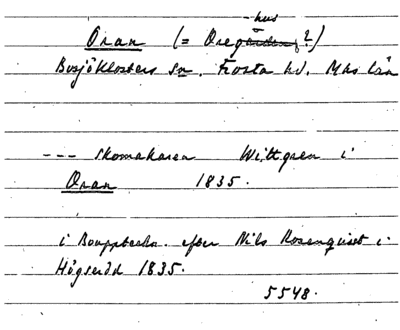 -hus
Oran (= Oregården ?)
Bosjöklosters sn. Frosta hd. Mhs län
--- skomakaren Wittgren i
Oran 1835.
i Bouppteckn. efter Nils Rosenquist i
Högseröd 1835.
5548.